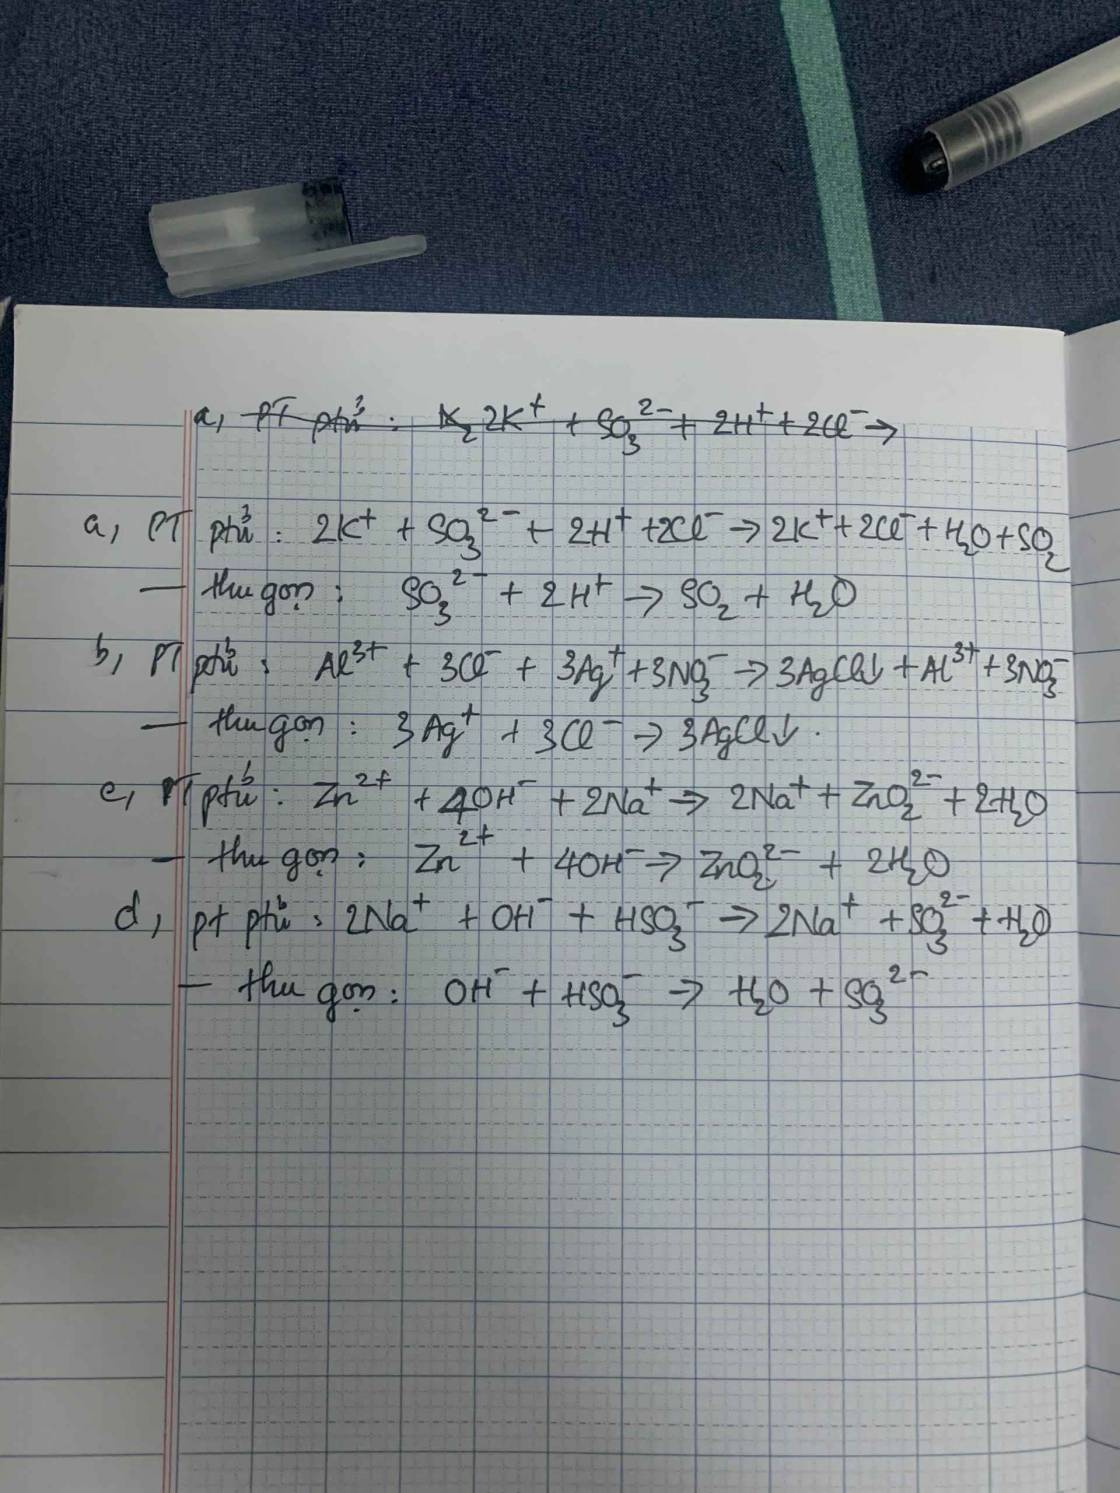 a, PT ptử : K₂ 2K⁺ + SO₃²⁻ + 2H⁺ + 2Cl⁻ →
a, PT ptử : 2K⁺ + SO₃²⁻ + 2H⁺ + 2Cl⁻ → 2K⁺ + 2Cl⁻ + H₂O + SO₂
— thu gọn : SO₃²⁻ + 2H⁺ → SO₂ + H₂O
b, PT ptử : Al³⁺ + 3Cl⁻ + 3Ag⁺ + 3NO₃⁻ → 3AgCl↓ + Al³⁺ + 3NO₃⁻
— thu gọn : 3Ag⁺ + 3Cl⁻ → 3AgCl↓ .
c, PT ptử : Zn²⁺ + 4OH⁻ + 2Na⁺ → 2Na⁺ + ZnO₂²⁻ + 2H₂O
— thu gọn : Zn²⁺ + 4OH⁻ → ZnO₂²⁻ + 2H₂O
d, pt ptử : 2Na⁺ + OH⁻ + HSO₃⁻ → 2Na⁺ + SO₃²⁻ + H₂O
— thu gọn : OH⁻ + HSO₃⁻ → H₂O + SO₃²⁻